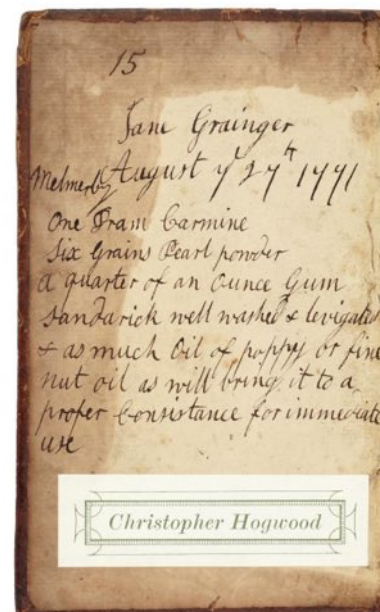 15
Jane Grainger
Melmerby August yᵉ 27ᵗʰ 1771
One Dram Carmine
Six Grains Pearl powder
a quarter of an Ounce Gum
Sandarick well washed & levigated
& as much Oil of poppy or fine
nut oil as will bring it to a
proper Consistance for immediate
use
Christopher Hogwood